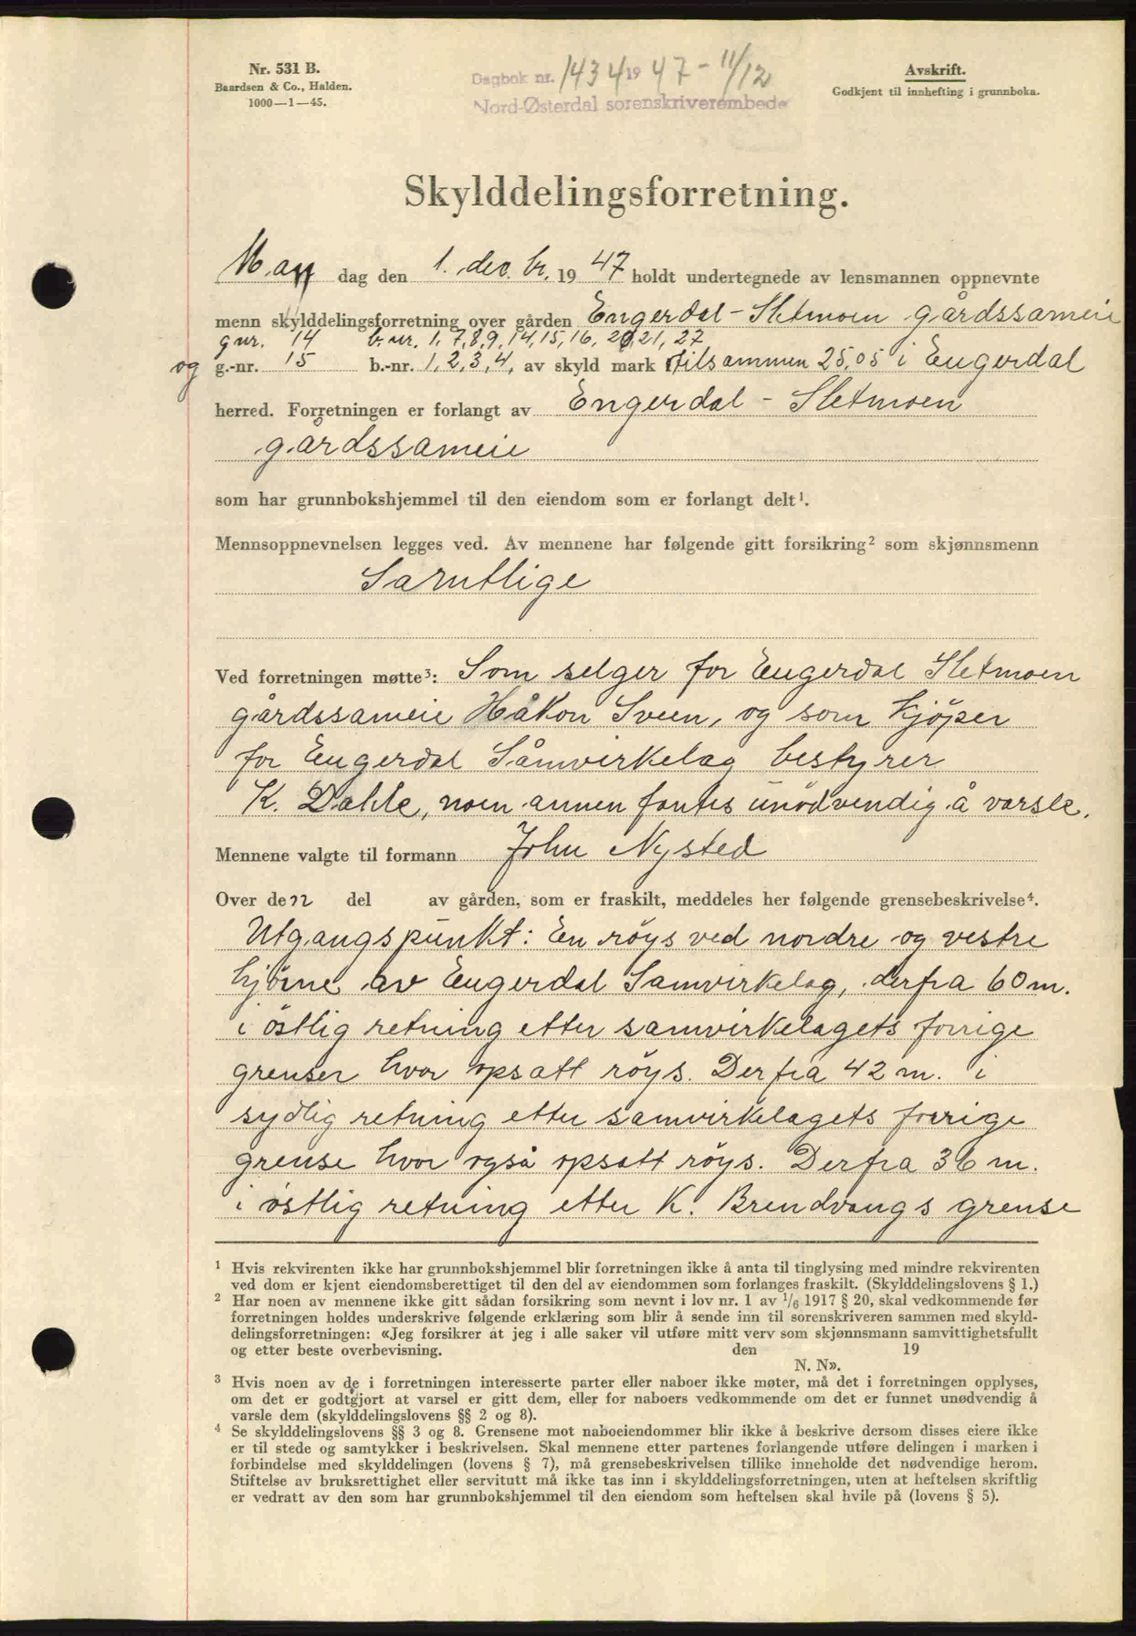 Nr. 531 B.
Baardsen & Co., Halden.
1000—1—45.
Dagbok nr. 1434 19 47 - 11/12
Nord-Østerdal sorenskriverembede
Avskrift.
Godkjent til innhefting i grunnboka.
Skylddelingsforretning.
Man dag den 1. des. br. 19 47 holdt undertegnede av lensmannen oppnevnte
menn skylddelingsforretning over gården Engerdal - Sletmoen gårdssameie
gnr. 14 b.nr. 1, 7, 8, 9, 14, 15, 16, 20, 21, 27
og g.-nr. 15 b.-nr. 1, 2, 3, 4, av skyld mark tilsammen 25,05 i Engerdal
herred. Forretningen er forlangt av Engerdal - Sletmoen
gårdssameie
som har grunnbokshjemmel til den eiendom som er forlangt delt¹.
Mennsoppnevnelsen legges ved. Av mennene har følgende gitt forsikring² som skjønnsmenn
Samtlige
Ved forretningen møtte³: Som selger for Engerdal Sletmoen
gårdssameie Håkon Sveen, og som kjöper
for Engerdal Såmvirkelag bestyrer
K. Dahle, noen annen fantes unödvendig å varsle.
Mennene valgte til formann John Nysted
Over den del av gården, som er fraskilt, meddeles her følgende grensebeskrivelse⁴.
Utgangspunkt: En röys ved nordre og vestre
hjörne av Engerdal Samvirkelag, derfra 60 m.
i östlig retning etter samvirkelagets forrige
grenser hvor opsatt röys. Derfra 42 m. i
sydlig retning etter samvirkelagets forrige
grense hvor også opsatt röys. Derfra 36 m.
i östlig retning etter K. Brendvangs grense
¹ Hvis rekvirenten ikke har grunnbokshjemmel blir forretningen ikke å anta til tinglysing med mindre rekvirenten
ved dom er kjent eiendomsberettiget til den del av eiendommen som forlanges fraskilt. (Skylddelingslovens § 1.)
² Har noen av mennene ikke gitt sådan forsikring som nevnt i lov nr. 1 av 1/6 1917 § 20, skal vedkommende før
forretningen holdes underskrive følgende erklæring som blir å sende inn til sorenskriveren sammen med skyld-
delingsforretningen: «Jeg forsikrer at jeg i alle saker vil utføre mitt verv som skjønnsmann samvittighetsfullt
og etter beste overbevisning. den 19
N. N».
³ Hvis noen av de i forretningen interesserte parter eller naboer ikke møter, må det i forretningen opplyses,
om det er godtgjort at varsel er gitt dem, eller for naboers vedkommende om det er funnet unødvendig å
varsle dem (skylddelingslovens §§ 2 og 8).
⁴ Se skylddelingslovens §§ 3 og 8. Grensene mot naboeiendommer blir ikke å beskrive dersom disses eiere ikke
er til stede og samtykker i beskrivelsen. Skal mennene etter partenes forlangende utføre delingen i marken i
forbindelse med skylddelingen (lovens § 7), må grensebeskrivelsen tillike inneholde det nødvendige herom.
Stiftelse av bruksrettighet eller servitutt må ikke tas inn i skylddelingsforretningen, uten at heftelsen skriftlig
er vedratt av den som har grunnbokshjemmel til den eiendom som heftelsen skal hvile på (lovens § 5).